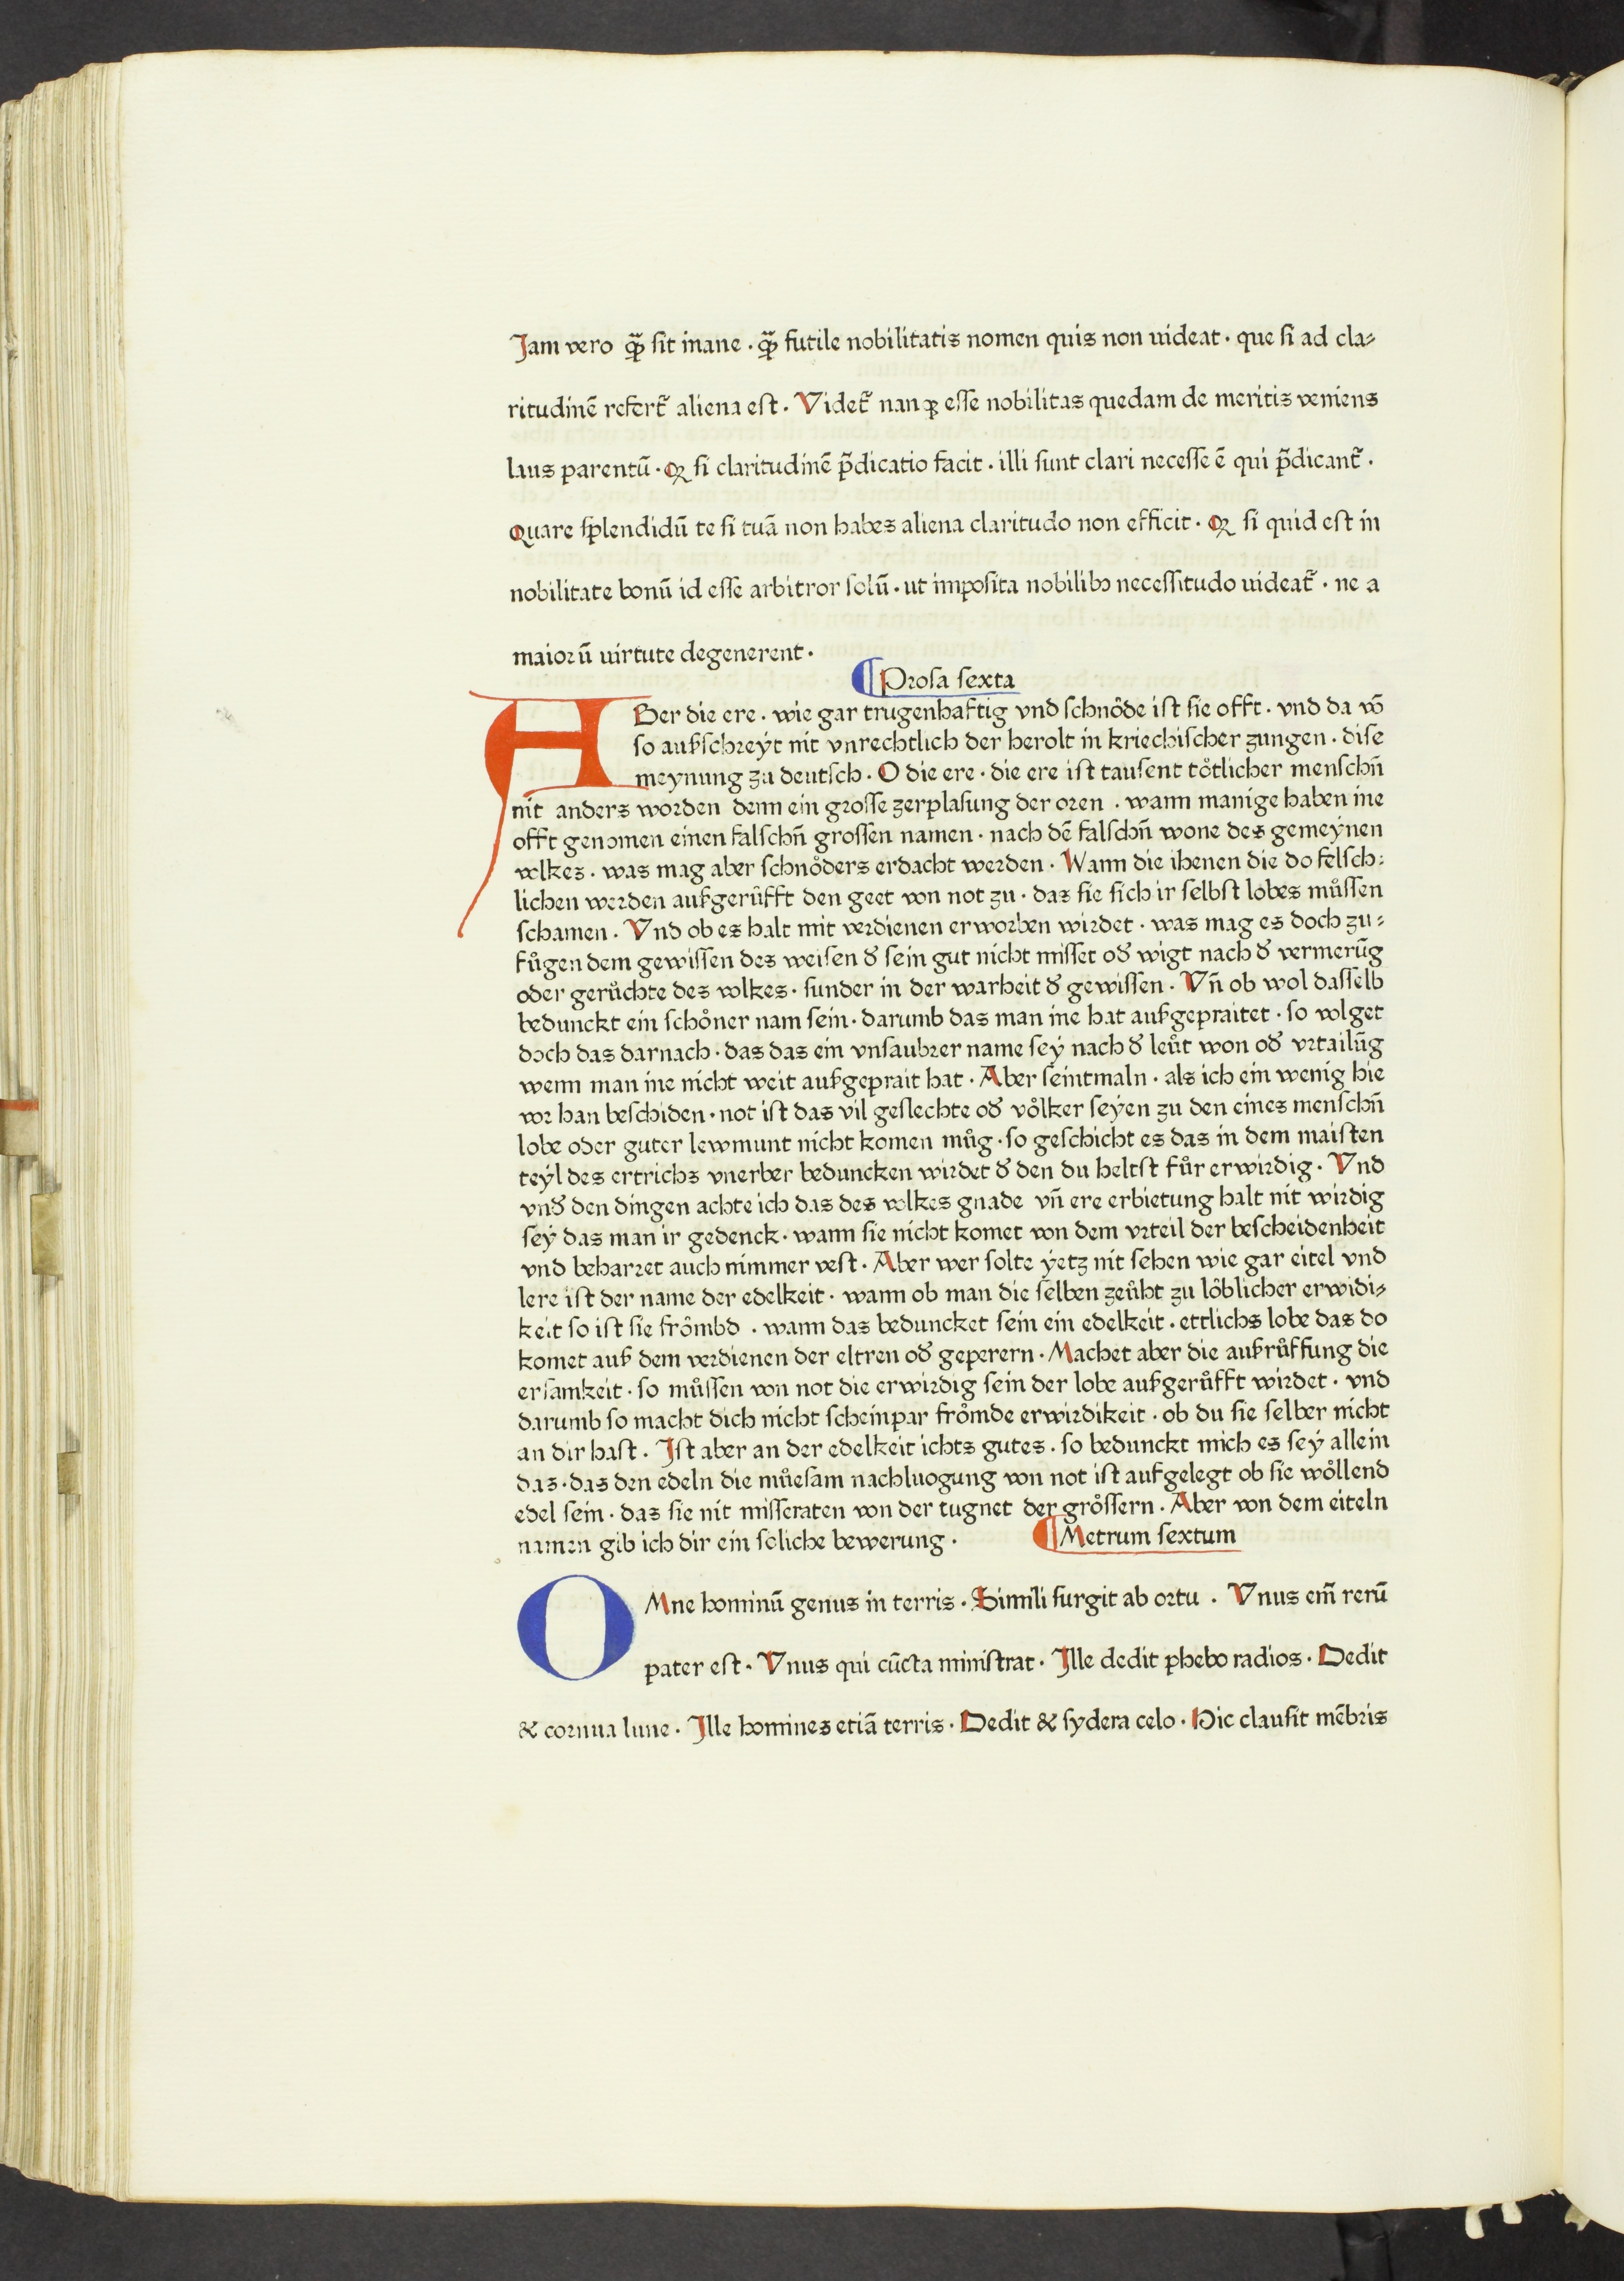 Jam vero qͣꝫ sit inane · qͣꝫ futile nobilitatis nomen quis non uideat · que si ad cla⸗
ritudinē refert᷑ aliena est · Videt᷑ nanqꝫ esse nobilitas quedam de meritis veniens
laus parentū · Qꝫ si claritudinē p̄dicatio facit · illi sunt clari necesse ē qui p̄dicant᷑ ·
Quare splendidū te si tuā non habes aliena claritudo non efficit · Qꝫ si quid est in
nobilitate bonū id esse arbitror solū · ut imposita nobilibꝫ necessitudo uideat᷑ · ne a
maiorū uirtute degenerent ·
¶Prosa sexta
ABer die ere · wie gar trugenhaftig vnd schnöde ist sie offt · vnd da vō
so außschreÿt nit vnrechtlich der herolt in kriechischer zungen · dise
meynung zu deutsch · O die ere · die ere ist tausent toͤtlicher menschn̄
nit anders worden denn ein grosse zerplasung der oren · wann manige haben ine
offt genomen einen falschn̄ grossen namen · nach dē falschn̄ wone des gemeÿnen
volkes · was mag aber schnoͤders erdacht werden · Wann die ihenen die do felsch⸗
lichen werden außgeruͤfft den geet von not zu · das sie sich ir selbst lobes muͤssen
schamen · Vnd ob es halt mit verdienen erworben wirdet · was mag es doch zu⸗
fuͤgen dem gewissen des weisen ď sein gut nicht misset oď wigt nach ď vermerūg
oder geruͤchte des volkes · sunder in der warheit ď gewissen · Vn̄ ob wol dasselb
bedunckt ein schoͤner nam sein · darumb das man ine hat außgepraitet · so volget
doch das darnach · das das ein vnsaubrer name seÿ nach ď leuͤt won oď vrtailūg
wenn man ine nicht weit außgeprait hat · Aber seintmaln · als ich ein wenig hie
vor han beschiden · not ist das vil geslechte oď voͤlker seÿen zu den eines menschn̄
lobe oder guter lewmunt nicht komen muͤg · so geschicht es das in dem maisten
teÿl des ertrichs vnerber beduncken wirdet ď den du heltst fuͤr erwirdig · Vnd
vnď den dingen achte ich das des volkes gnade vn̄ ere erbietung halt nit wirdig
seÿ das man ir gedenck · wann sie nicht komet von dem vrteil der bescheidenheit
vnd beharret auch nimmer vest · Aber wer solte ÿetz nit sehen wie gar eitel vnd
lere ist der name der edelkeit · wann ob man die selben zeuͤht zu löblicher erwidi⸗
keit so ist sie frömbd · wann das beduncket sein ein edelkeit · ettlichs lobe das do
komet auß dem verdienen der eltren oď geperern · Machet aber die außruͤffung die
ersamkeit · so muͤssen von not die erwirdig sein der lobe außgeruͤfft wirdet · vnd
darumb so macht dich nicht scheinpar froͤmde erwirdikeit · ob du sie selber nicht
an dir hast · Jst aber an der edelkeit ichts gutes · so bedunckt mich es seÿ allein
das · das den edeln die muͤesam nachluogung von not ist aufgelegt ob sie woͤllend
edel sein · das sie nit misseraten von der tugnet der groͤssern · Aber von dem eiteln
namen gib ich dir ein soliche bewerung ·
¶Metrum sextum
OMne hominū genus in terris · Simili surgit ab ortu · Vnus em̄ rerū
pater est · Vnus qui cūcta ministrat · Jlle dedit phebo radios · Dedit
& cornua lune · Jlle homines etiā terris · Dedit & sydera celo · Hic clausit mēbris